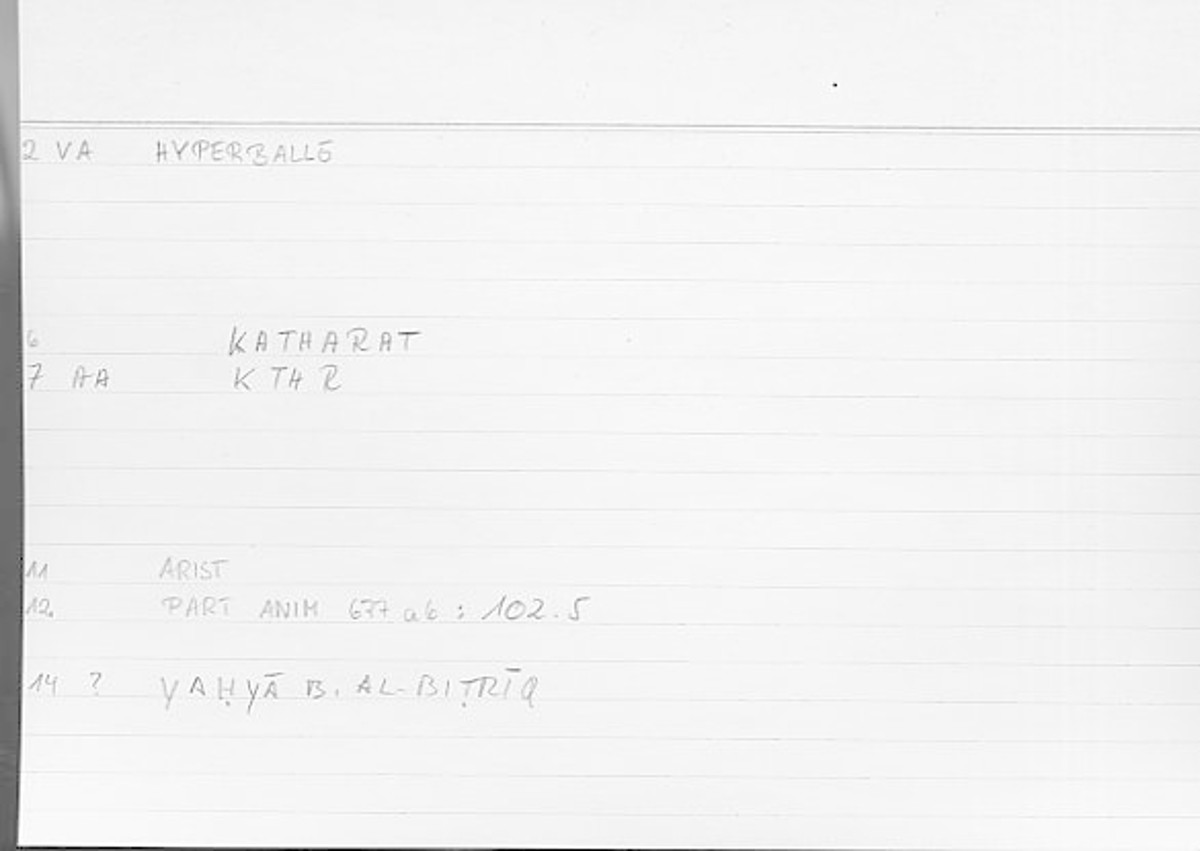 2 VA HYPERBALLE
6 KATHARAT
7 AA K TH R
11 ARIST
12. PART ANIM 677 a6 : 102.5
14 ? YAḤYĀ B. AL-BIṬRĪQ